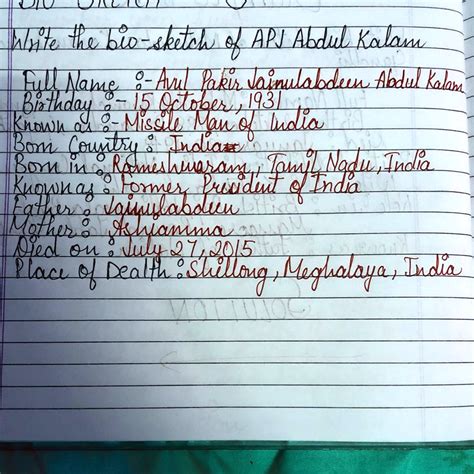 Bio Sketch
Write the bio-sketch of APJ Abdul Kalam
Full Name :- Avul Pakir Jainulabdeen Abdul Kalam
Birthday :- 15 October, 1931
Known as :- Missile Man of India
Born Country : India
Born in : Rameshwaram, Tamil Nadu, India
Known as : Former President of India
Father : Jainulabdeen
Mother : Ashiamma
Died on : July 27, 2015
Place of Dealth : Shillong, Meghalaya, India